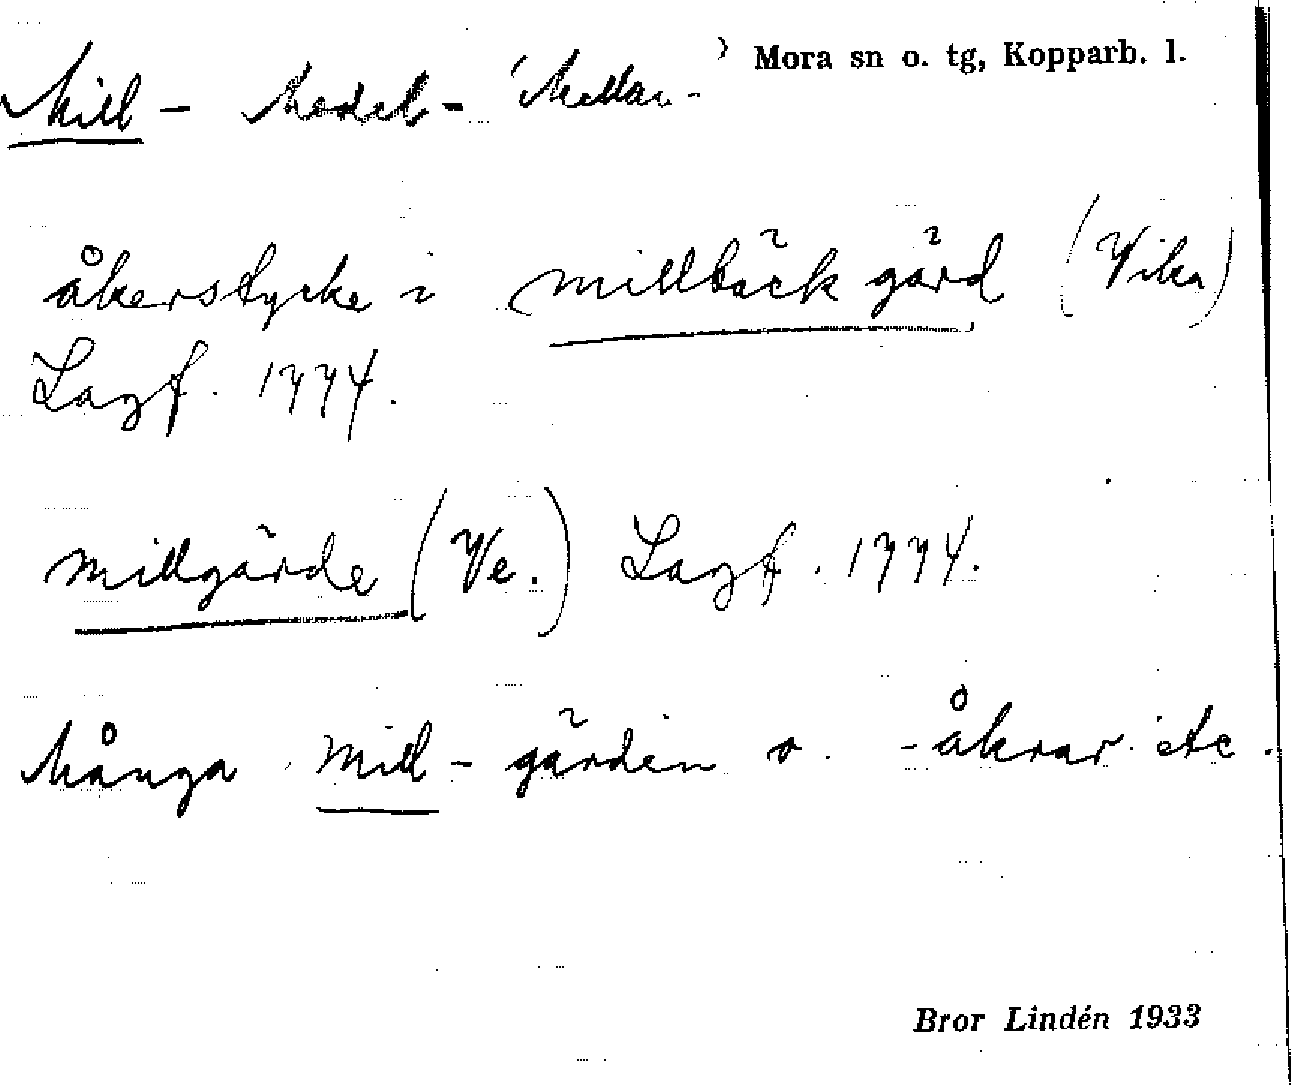 Mill- Medel- 'Mellan-' Mora sn o. tg, Kopparb. l.
åkerstycke i millbäck gärd (Vika)
Lagf. 1774.
millgärde (Ve.) Lagf. 1774.
Många mill-gärden o. -åkrar etc.
Bror Lindén 1933